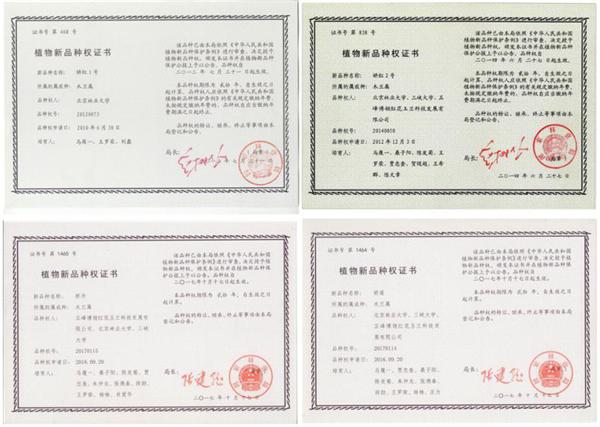 证书号 第 468 号
植物新品种权证书
新品种名称： 娇红1号
所属的属或种： 木兰属
品种权人： 北京林业大学
品种权号： 20120073
品种权申请日： 2010年6月30日
培育人： 马履一、王罗荣、刘鑫
该品种已由本局依照《中华人民共和国
植物新品种保护条例》进行审查，决定授予
植物新品种权，颁发本证书并在植物新品种
保护公报上予以公告。品种权自
二〇一二年七月三十一日起生效。
本品种权期限为 贰拾 年，自生效之日
起计算。品种权人应依照《中华人民共和国
植物新品种保护条例》的有关规定缴纳年费，
未按规定缴纳年费的，品种权自应当缴纳年
费期满之日起终止。
品种权的转让、继承、终止等事项由本局
登记和公告。
局长：
(局章)
证书号 第 838 号
植物新品种权证书
新品种名称： 娇红2号
所属的属或种： 木兰属
品种权人： 北京林业大学、三峡大学、五
峰博翎红花玉兰科技发展有
限公司
品种权号： 20140058
品种权申请日： 2012年12月3日
培育人： 马履一、陈发菊、王
罗荣、贾忠奎、贺随超、王希
群、陈文章
该品种已由本局依照《中华人民共和国
植物新品种保护条例》进行审查，决定授予
植物新品种权，颁发本证书并在植物新品种
保护公报上予以公告。品种权自
二〇一四年六月二十七日起生效。
本品种权期限为 贰拾 年，自生效之日
起计算。品种权人应依照《中华人民共和国
植物新品种保护条例》的有关规定缴纳年费，
未按规定缴纳年费的，品种权自应当缴纳年
费期满之日起终止。
品种权的转让、继承、终止等事项由本局
登记和公告。
局长：
(局章)
二〇一四年六月二十七日
证书号 第 1465 号
植物新品种权证书
新品种名称：
所属的属或种： 木兰属
品种权人： 五峰博翎红花玉兰科技发展有
限公司、北京林业大学、三峡
大学
品种权号： 20170115
品种权申请日： 2016.09.20
培育人： 马履一、桑子阳、陈发菊、贾
忠奎、朱仲龙、张德春、段劼、
王罗荣、杨杨、肖爱华
该品种已由本局依照《中华人民共和国
植物新品种保护条例》进行审查，决定授予植
物新品种权，颁发本证书并在植物新品种保
护公报上予以公告。品种权自
二〇一七年十月十七日起生效。
本品种权期限为 贰拾 年，自生效之日
起计算。
品种权的转让、继承、终止等事项由本局
登记和公告。
局长：
二〇一七年十月十七日
证书号 第 1464 号
植物新品种权证书
新品种名称： 娇莲
所属的属或种： 木兰属
品种权人： 三峡大学、北京林业大学、
五峰博翎红花玉兰科技发
展有限公司
品种权号： 20170114
品种权申请日： 2016.09.20
培育人： 马履一、贾忠奎、桑子阳、陈
发菊、朱仲龙、张德春、
段劼、王罗荣、杨杨、
该品种已由本局依照《中华人民共和国
植物新品种保护条例》进行审查，决定授予植
物新品种权，颁发本证书并在植物新品种保
护公报上予以公告。品种权自
二〇一七年十月十七日起生效。
本品种权期限为 贰拾 年，自生效之日
起计算。
品种权的转让、继承、终止等事项由本局
登记和公告。
局长：
二〇一七年十月十七日